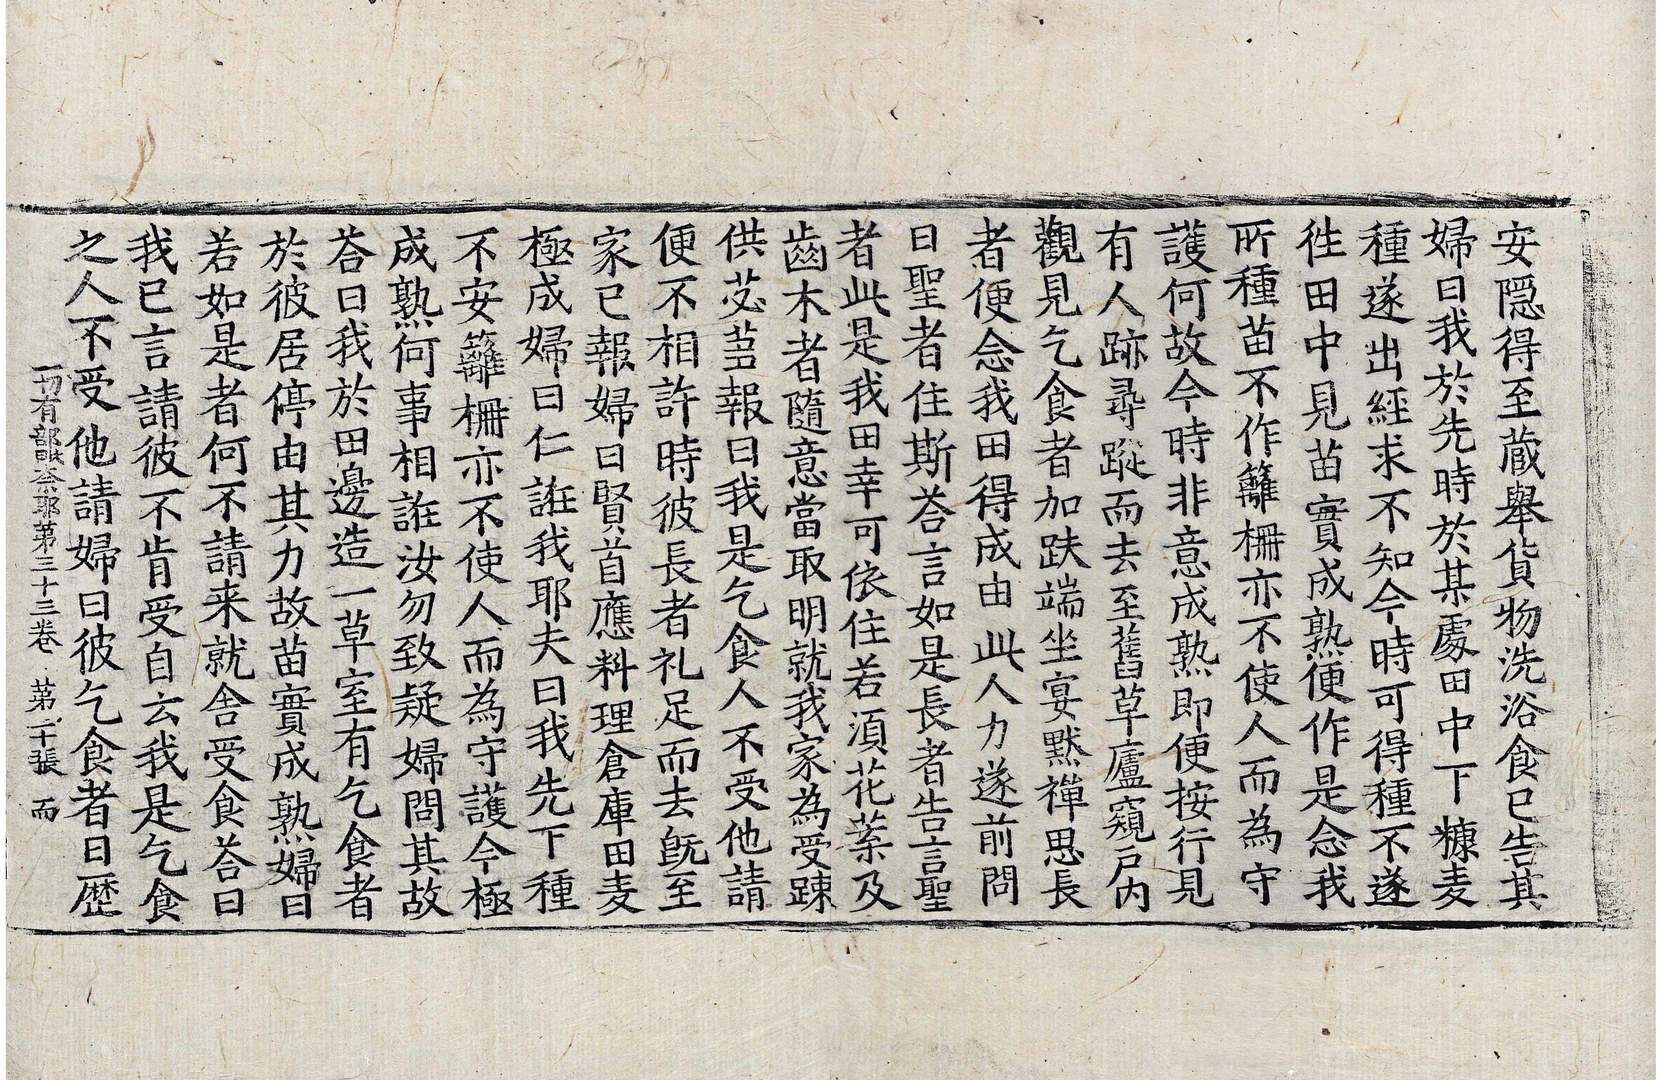 安隠得至蔵舉貨物洗浴食已告其
婦曰我於先時於某處田中下糠麦
種遂出經求不知今時可得種不遂
徃田中見苗實成熟便作是念我
所種苗不作籬柵亦不使人而為守
護何故今時非意成熟即便按行見
有人跡尋蹤而去至舊草廬窺戸内
觀見乞食者加趺端坐宴默禪思長
者便念我田得成由此人力遂前問
曰聖者住斯荅言如是長者告言聖
者此是我田幸可依住若湏花菓及
齒木者隨意當取明就我家為受踈
供苾蒭報曰我是乞食人不受他請
便不相許時彼長者礼足而去旣至
家已報婦曰賢首應料理倉庫田麦
極成婦曰仁誑我耶夫曰我先下種
不安籬柵亦不使人而為守護今極
成熟何事相誑汝勿致疑婦問其故
荅曰我於田邊造一草室有乞食者
於彼居停由其力故苗實成熟婦曰
若如是者何不請来就舍受食荅曰
我已言請彼不肯受自云我是乞食
之人不受他請婦曰彼乞食者日歷
一切有部毗奈耶第三十三卷 第二十張 而